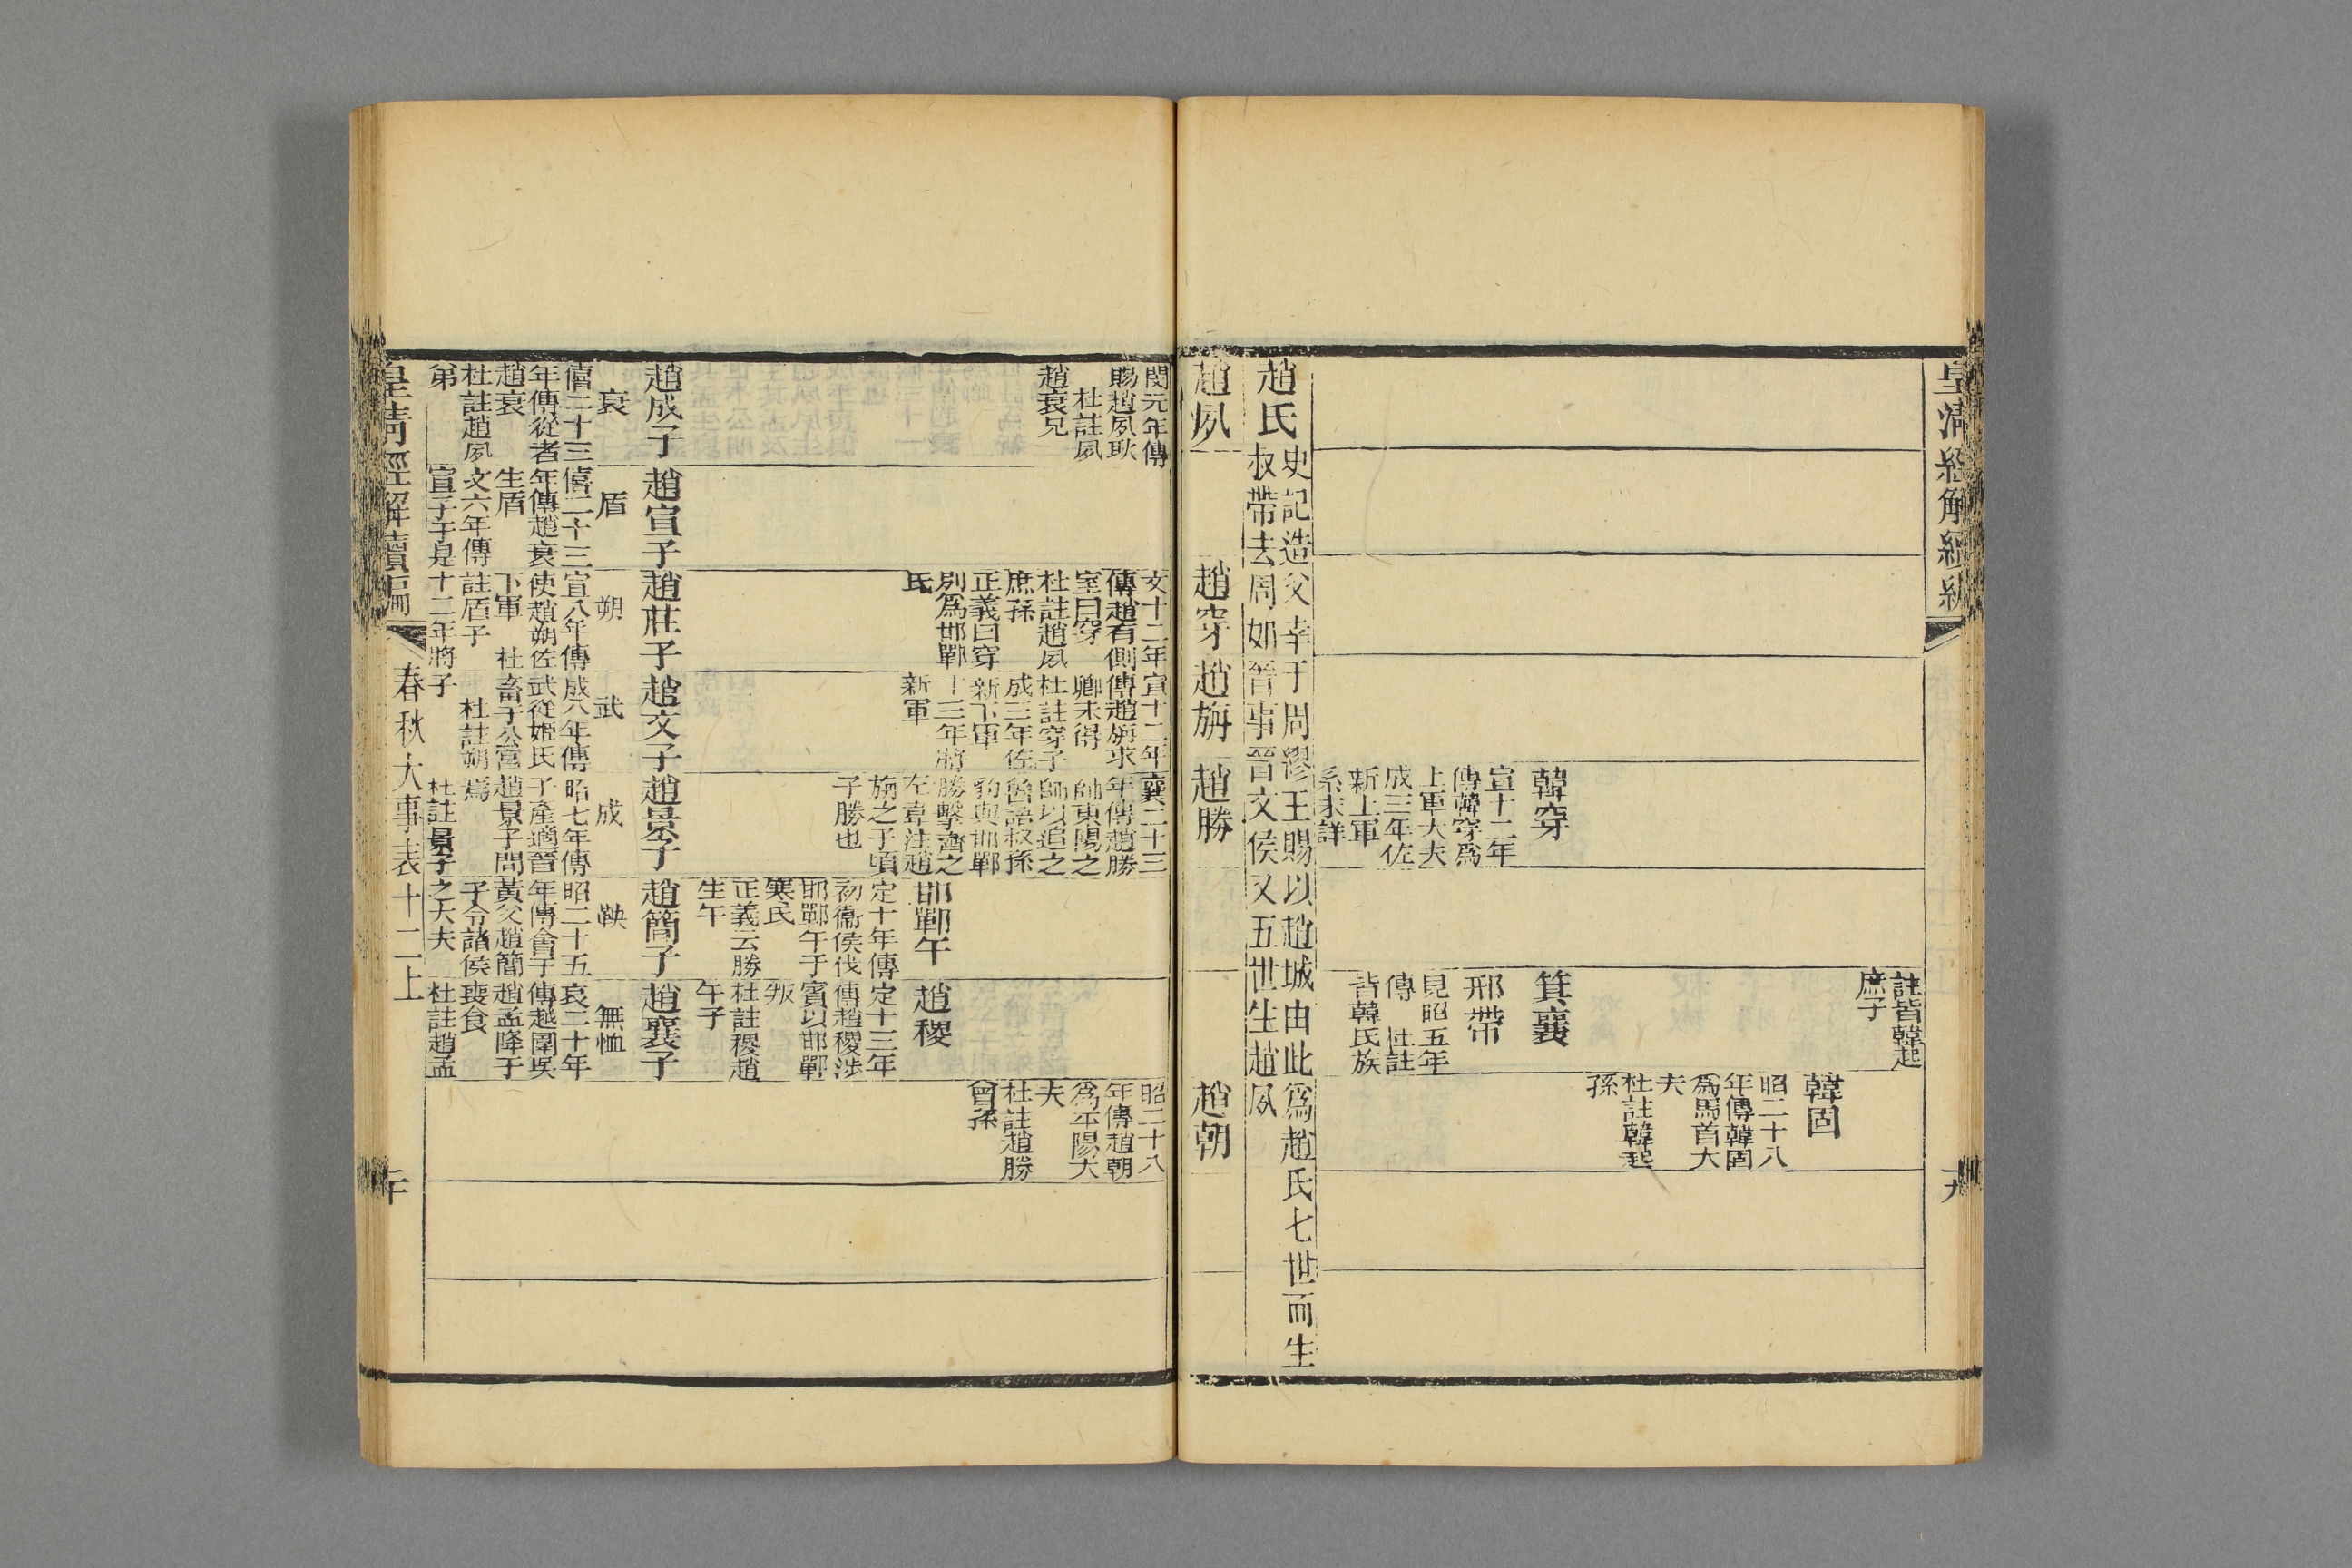 皇清經解續編
九
註皆韓起
庶子
韓固
昭二十八
年傳韓固
爲馬首大
夫
杜註韓起
孫
韓穿
宣十二年
傳韓穿爲
上軍大夫
成三年佐
新上軍
系未詳
箕襄
邢帶
見昭五年
傳 杜註
皆韓氏族
趙氏
史記造父幸于周繆王賜以趙城由此爲趙氏七世而生
叔帶去周如晉事晉文侯又五世生趙夙
趙夙
趙穿
趙旃
趙勝
趙朝
閔元年傳
賜趙夙耿
杜註夙
趙衰兄
文十二年
傳趙有側
室曰穿
杜註趙夙
庶孫
正義曰穿
別爲邯鄲
氏
宣十二年
傳趙旃求
卿未得
杜註穿子
成三年佐
新下軍
十三年將
新軍
襄二十三
年傳趙勝
帥東陽之
師以追之
魯語叔孫
豹與邯鄲
勝擊齊之
左韋注趙
旃之子頃
子勝也
邯鄲午
定十年傳
初衞侯伐
邯鄲午于
寒氏
正義云勝
生午
趙稷
定十三年
傳趙稷涉
賓以邯鄲
叛
杜註稷趙
午子
昭二十八
年傳趙朝
爲平陽大
夫
杜註趙勝
曾孫
趙成子
衰
僖二十三
年傳從者
趙衰
杜註趙夙
弟
趙宣子
盾
僖二十三
年傳趙衰
生盾
文六年傳
宣子于是
趙莊子
朔
宣八年傳
使趙朔佐
下軍 杜
註盾子
十二年將
趙文子
武
成八年傳
武從姬氏
畜于公宮
杜註朔
子
趙景子
成
昭七年傳
子產適晉
趙景子問
焉
杜註景子
趙簡子
鞅
昭二十五
年傳會于
黃父趙簡
子令諸侯
之大夫
趙襄子
無恤
哀二十年
傳越圍吳
趙孟降于
喪食
杜註趙孟
皇清經解續編
春秋大事表十二上